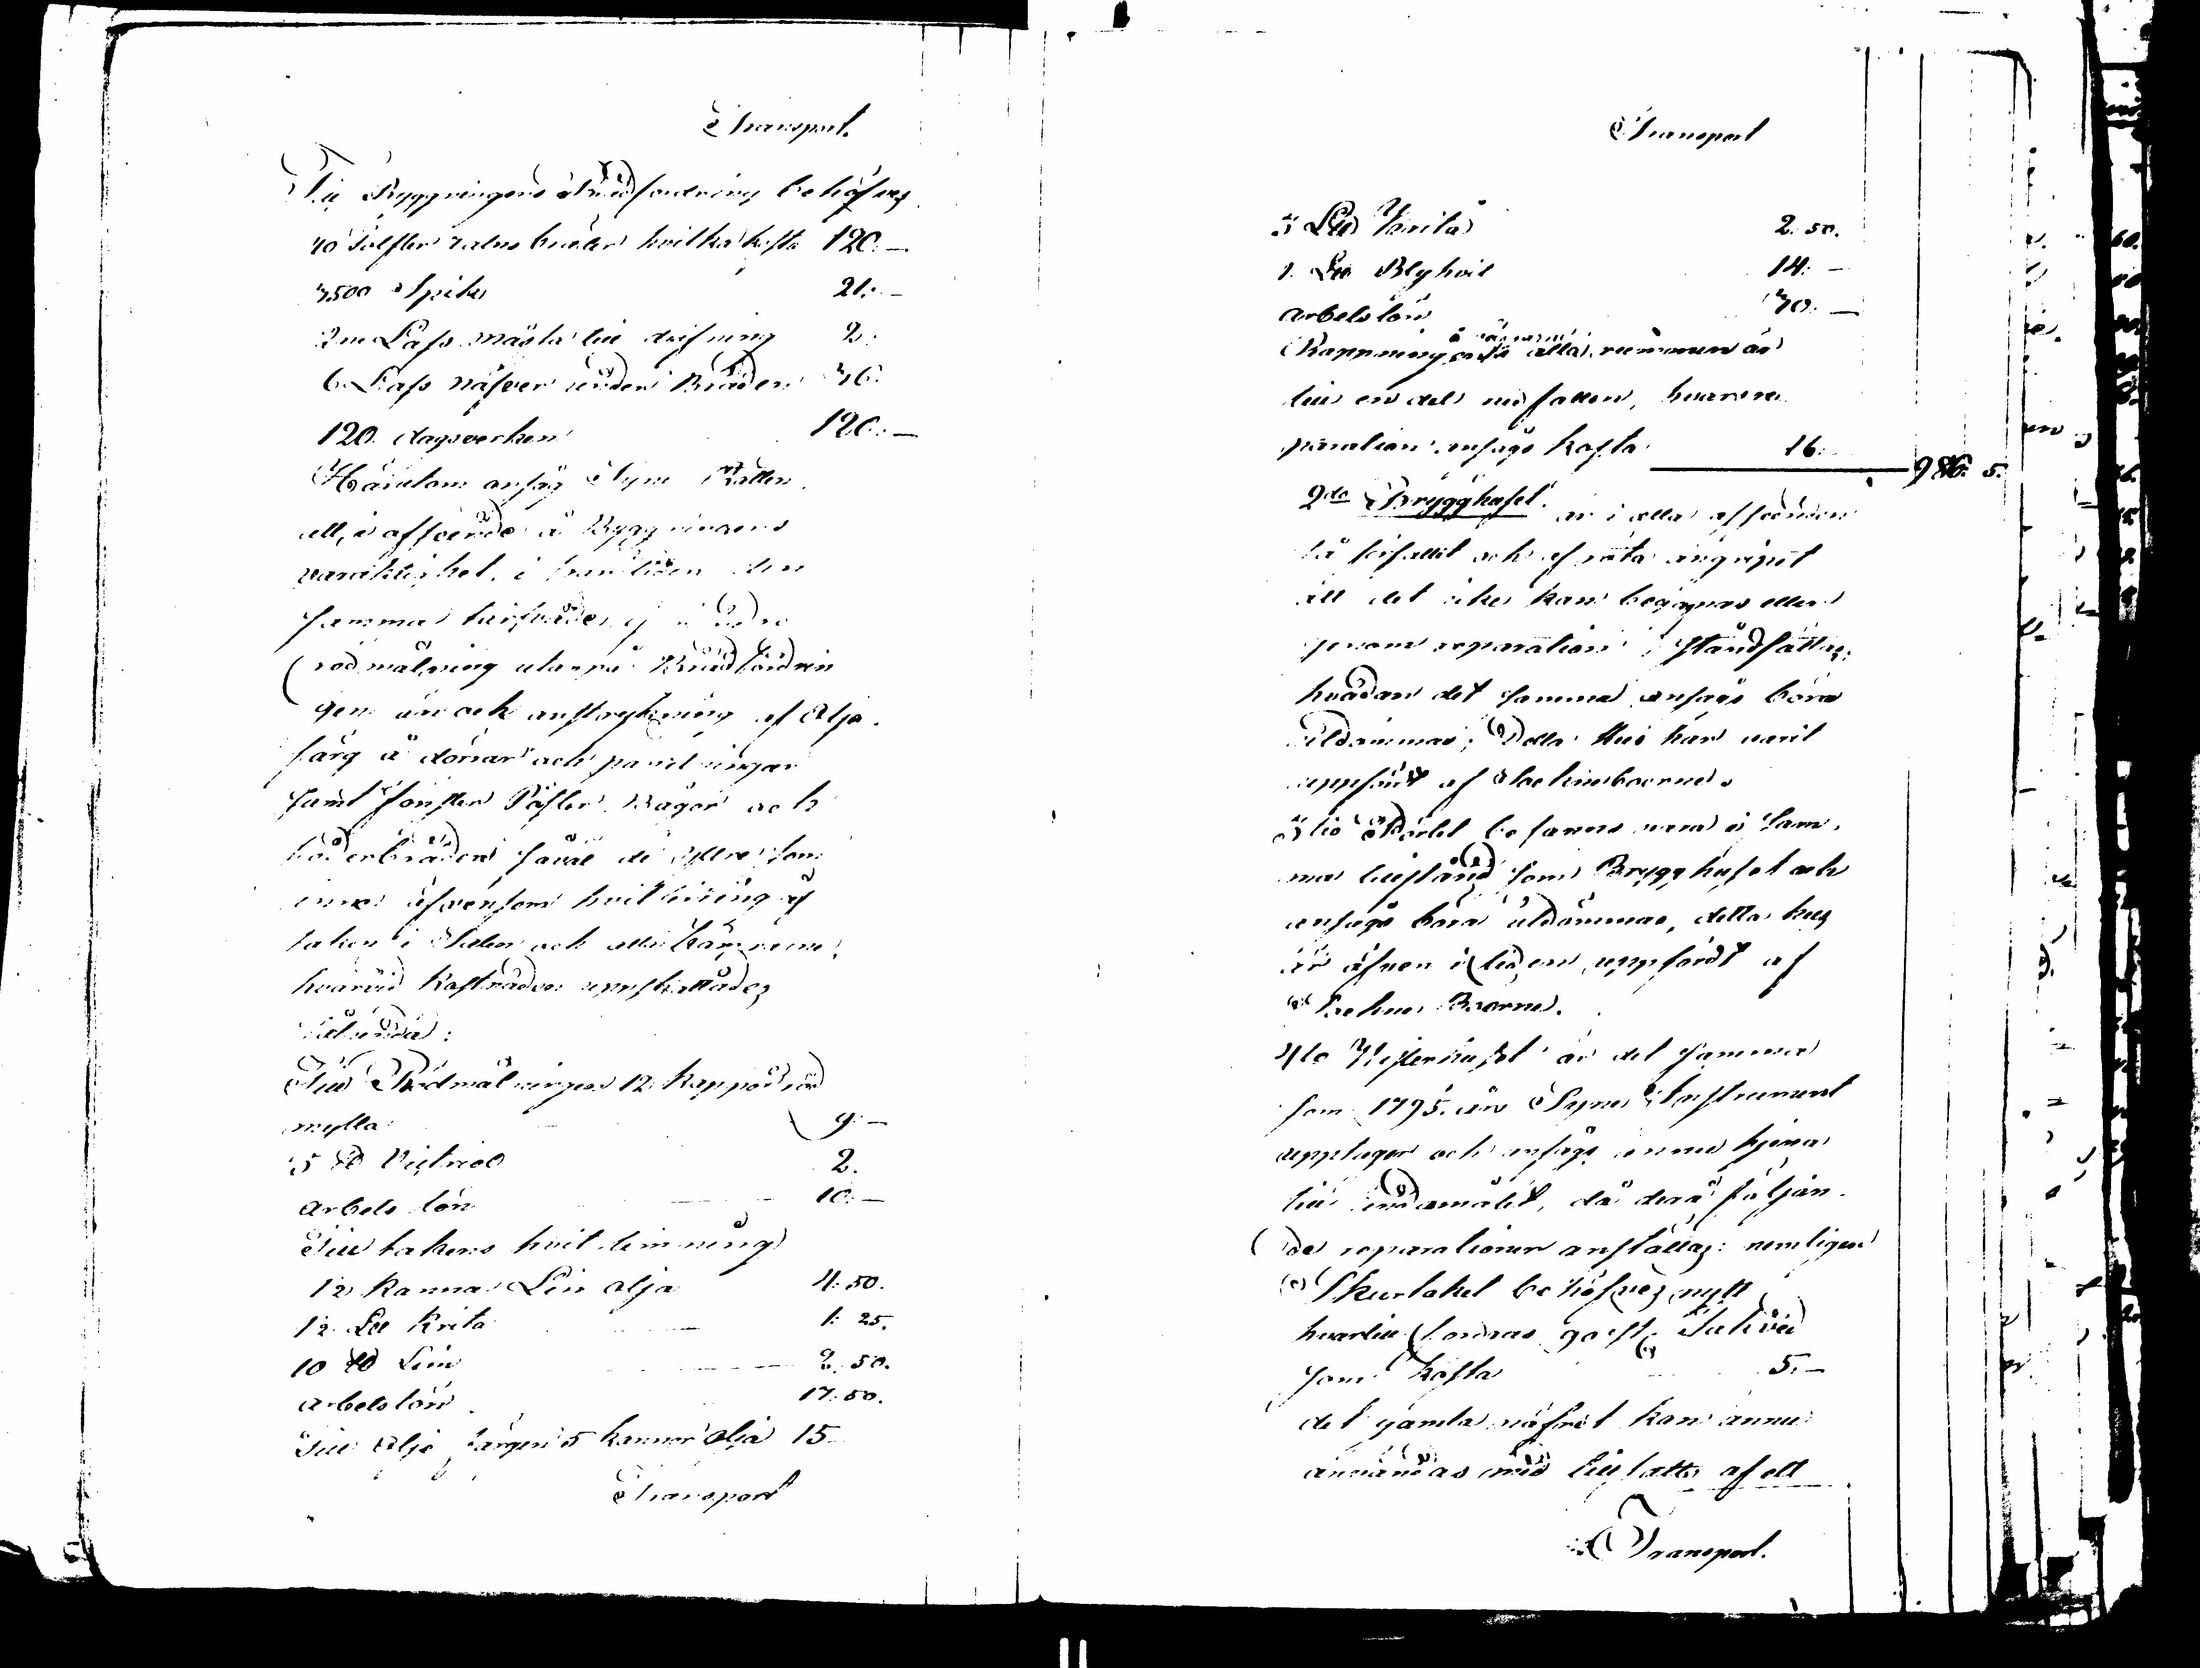 Transport.
Till Byggningens brädfordring behöfves
40 tolfter bräder hvilka kosta 120. —
7500 Spik 21. —
2ne Lass mossa till drifning 2.
6 Lass näfver under Bräden 36.
120 dagsverken 120. —
Härutom ansåg Syne Rätten
att, i afseende å Byggningens
varaktighet, i framtiden den
samma tarfvade
rödmålning utanpå Brädfordrin
gen och anstrykning af Olje
färg å dörrar och panelningar
samt fönster Poster Bågar och
foderbräden såväl de yttre som
inre äfvensom hvitlimning af
taken i Salen och alla Kamrarne,
hvarvid Kostnaden uppskattades
sålunda:
Till Rödmålningen 12 kappor röd
mylla 9. —
5 ℔ Victriol 2.
Arbetslön 10. —
Till takens hvitlimning
1½ kanna Lin olja 4. 50.
1½ L℔ Krita 1. 25.
10 ℔ Lim 2. 50.
arbetslön 17. 50.
Till Olje färgen 5 kannor Olja 15
Transport
Transport
5 L℔ Krita 2. 50.
1 L℔ Blyhvit 14. —
arbetslön 70. —
Rappningen å väggarne i alla rummen är
till en del nedfallen, hvars re
paration ansågs kosta 16. 986. 5.
2do Brygghuset är i alla afseenden
så förfallit och af röta angripit
att det icke kan begagnas eller
genom reparation i ståndsättas;
hvadan det samma ansågs böra
utdömmas; Detta Hus har varit
uppfört af Sockneboerne.
3tio befanns vara i sam
ma tillstånd som Brygghuset och
ansågs böra utdömmas, detta hus
är äfven i tiden uppfördt af
Sockne Boerne.
4to Visterhuset är det samma
som 1795 års Syne Instrument
upptager och ansågs ännu tjena
till ändamålet, då derå följan
de reparationer anställas: nemligen
Skurtaket behöfves nytt
hvartill fordras 90 st. Takved
som kosta 5. —
det gamla näfret kan ännu
användas med tillsatts af ett
Transport.